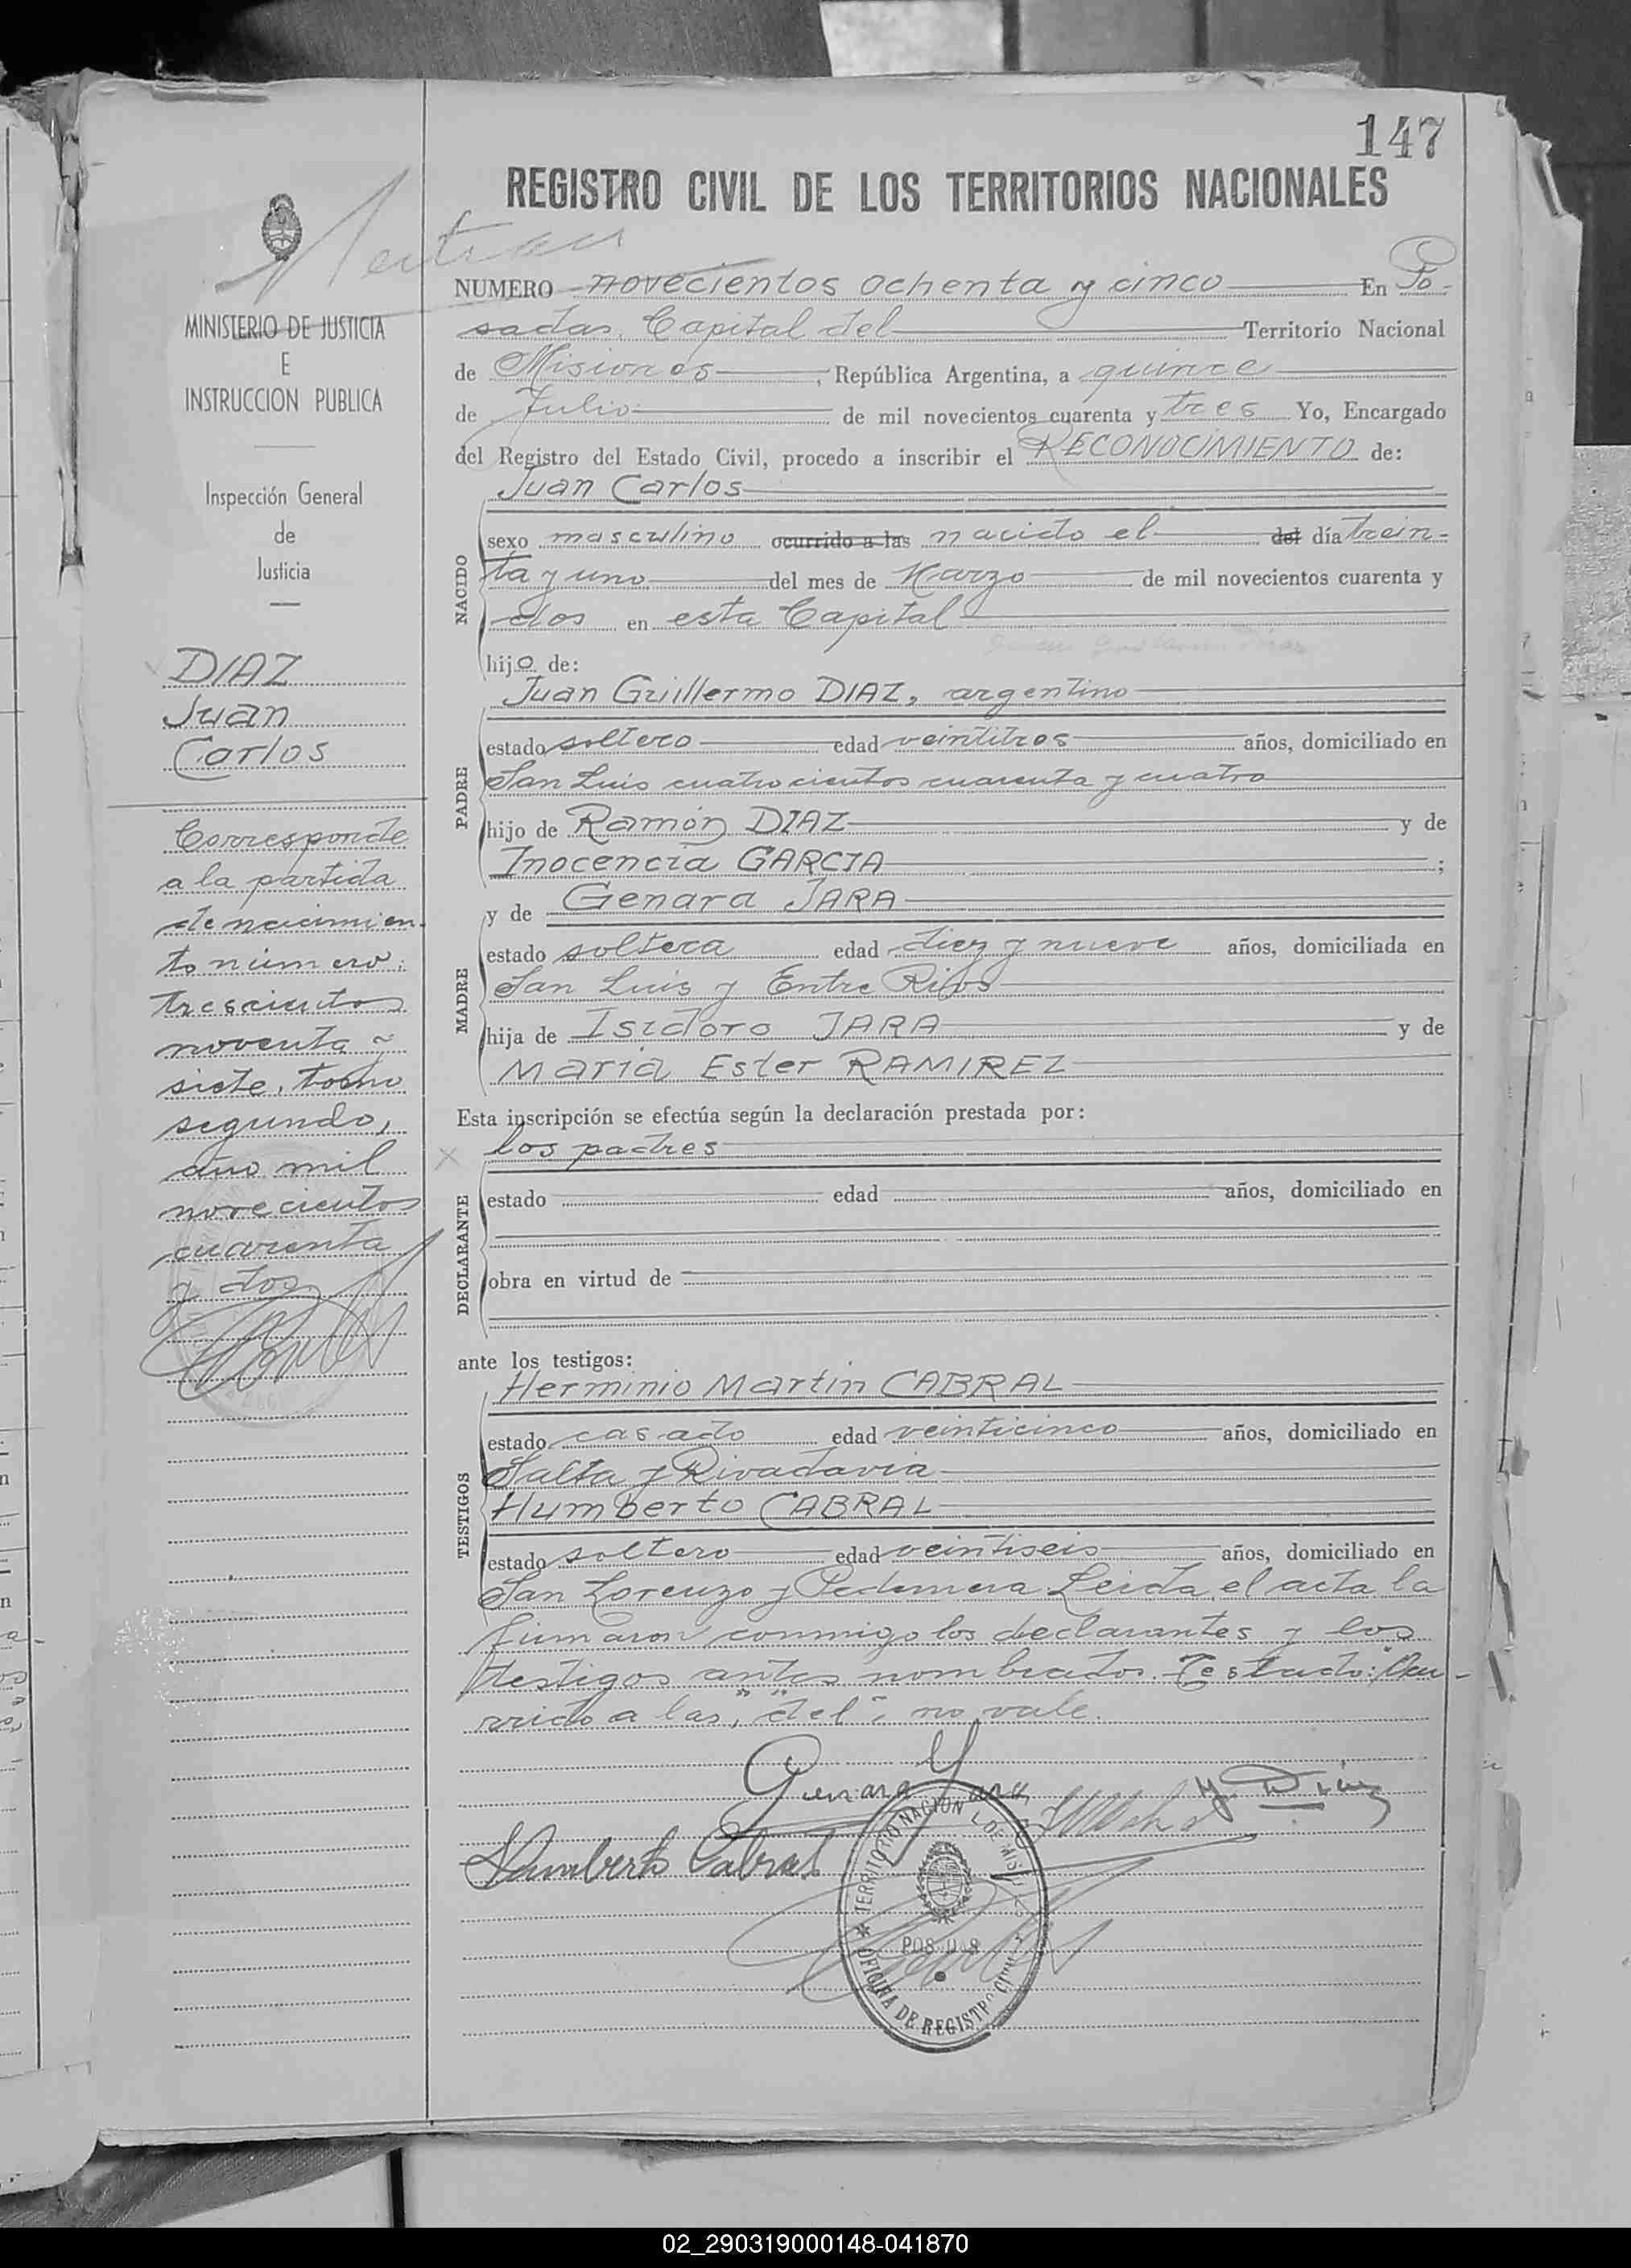 147
REGISTRO CIVIL DE LOS TERRITORIOS NACIONALES
NUMERO novecientos ochenta y cinco En Po-
sadas, Capital del Territorio Nacional
de Misiones, República Argentina, a quince
de Julio de mil novecientos cuarenta y tres Yo, Encargado
del Registro del Estado Civil, procedo a inscribir el RECONOCIMIENTO de:
Juan Carlos
NACIDO
sexo masculino ocurrido a las nacido el del día trein-
ta y uno del mes de Marzo de mil novecientos cuarenta y
dos en esta Capital
hijo de:
Juan Guillermo DIAZ, argentino
PADRE
estado soltero edad veintitres años, domiciliado en
San Luis cuatrocientos cuarenta y cuatro
hijo de Ramón DIAZ y de
Inocencia GARCIA ;
y de Genara JARA
MADRE
estado soltera edad diez y nueve años, domiciliada en
San Luis y Entre Rios
hija de Isidoro JARA y de
Maria Ester RAMIREZ
Esta inscripción se efectúa según la declaración prestada por:
los padres
DECLARANTE
estado edad años, domiciliado en
obra en virtud de
ante los testigos:
Herminio Martin CABRAL
TESTIGOS
estado casado edad veinticinco años, domiciliado en
Salta y Rivadavia
Humberto CABRAL
estado soltero edad veintiseis años, domiciliado en
San Lorenzo y Pedernera. Leida el acta la
firmaron conmigo los declarantes y los
testigos antes nombrados. Testado: "Ocu-
rrido a las", "del", no vale.
Genara Jara
J Diaz
Humberto Cabral
TERRITORIO NACIONAL DE MISIONES
POSADAS
OFICINA DE REGISTRO CIVIL
MINISTERIO DE JUSTICIA
E
INSTRUCCION PUBLICA
Inspección General
de
Justicia
DIAZ
Juan
Carlos
Corresponde
a la partida
de nacimien-
to número
trescientos
noventa y
siete, tomo
segundo,
año mil
novecientos
cuarenta
y dos
02_290319000148-041870